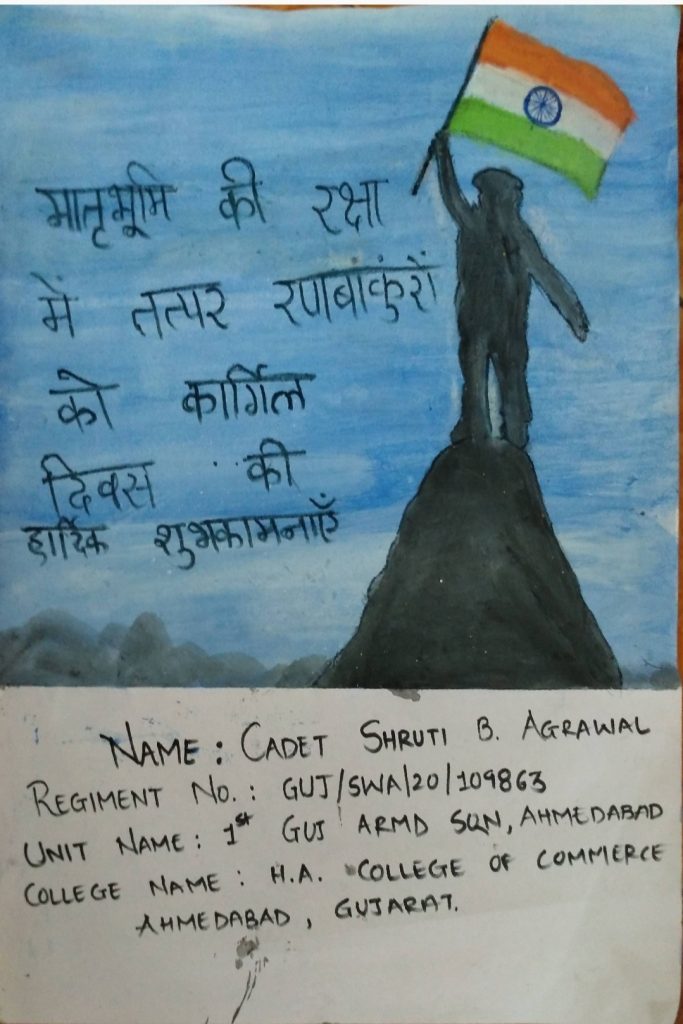 मातृभूमि की रक्षा
में तत्पर रणबांकुरों
को कार्गिल
दिवस की
हार्दिक शुभकामनाएँ
NAME : CADET SHRUTI B. AGRAWAL
REGIMENT NO. : GUJ/SWA/20/109863
UNIT NAME : 1st GUJ ARMD SQN, AHMEDABAD
COLLEGE NAME : H.A. COLLEGE OF COMMERCE
AHMEDABAD , GUJARAT.